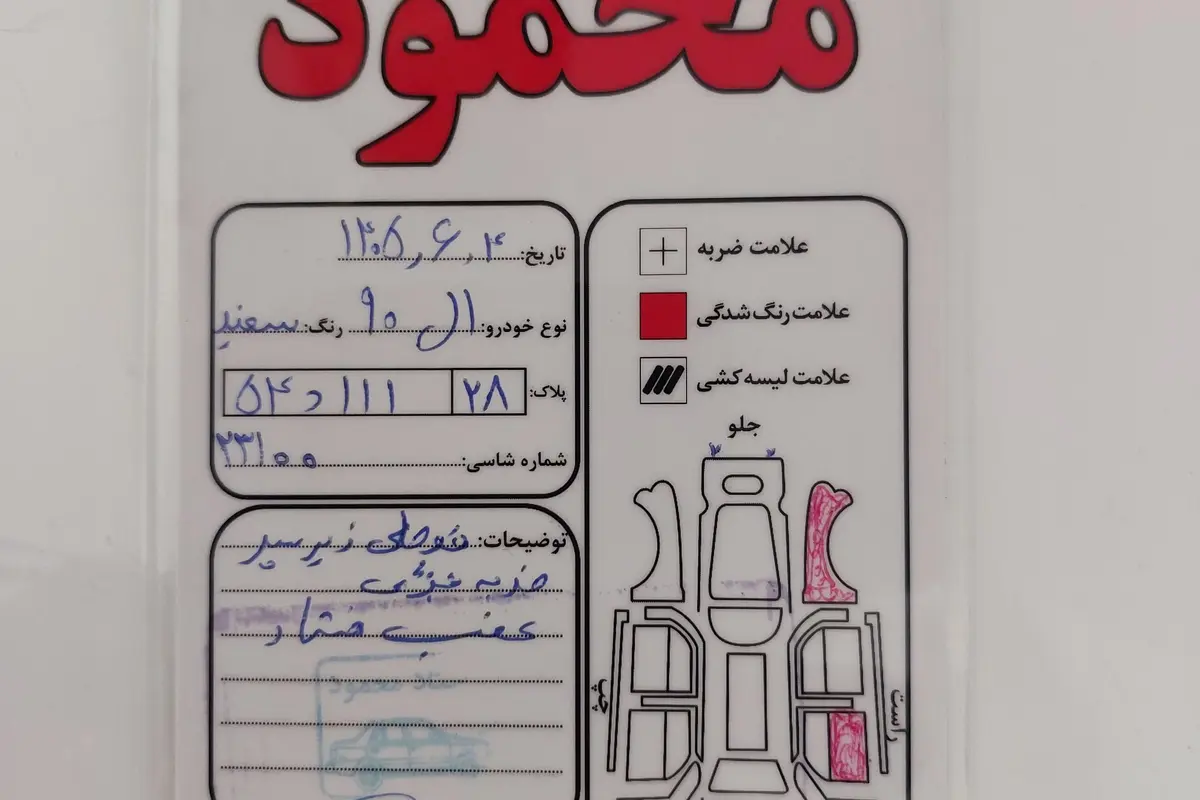 محمود
تاریخ: ۱۴۰۵,۶,۴
نوع خودرو: ال ۹۰ رنگ: سفید
پلاک: ۲۸ ۱۱۱ د ۵۴
شماره شاسی: ۲۳۱۰۰
توضیحات: زیر سپر
ضربه جزئی
عقب
علامت ضربه
علامت رنگ شدگی
علامت لیسه کشی
جلو
چپ
راست
استاد محمود